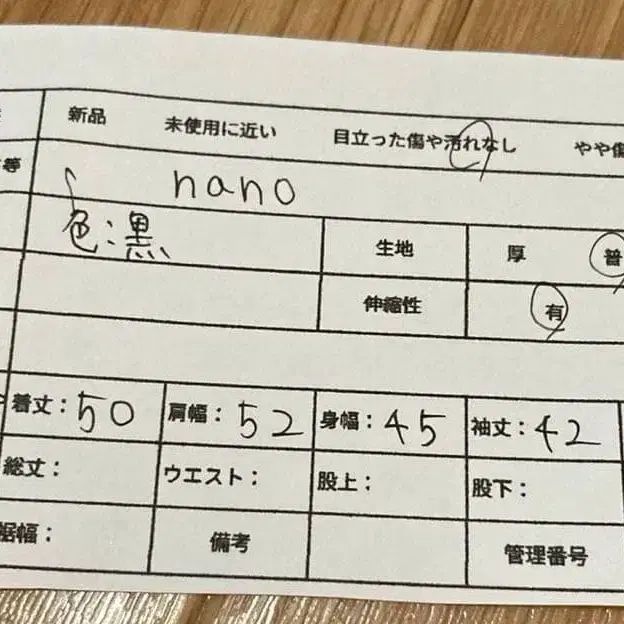 新品 未使用に近い 目立った傷や汚れなし やや傷
等 nano
色:黒 生地 厚 普
伸縮性 有
着丈:50 肩幅:52 身幅:45 袖丈:42
総丈: ウエスト: 股上: 股下:
裾幅: 備考 管理番号